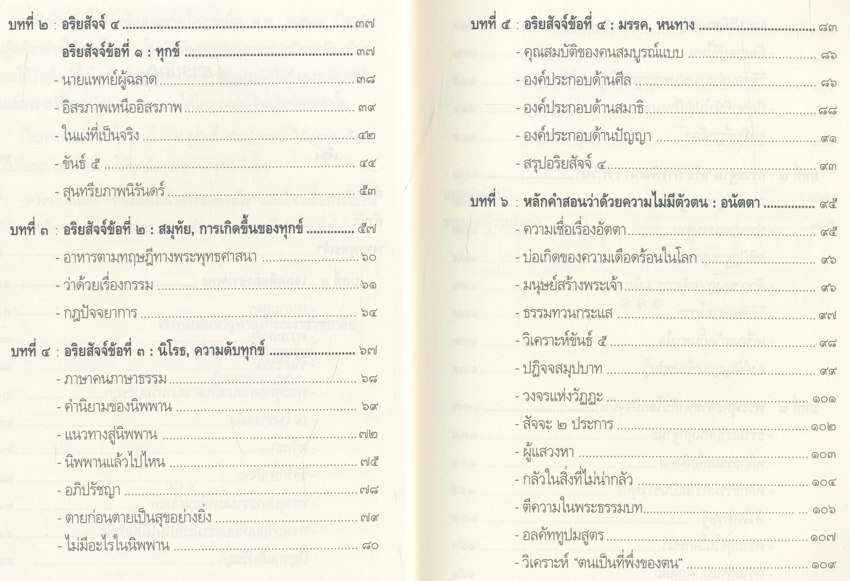 บทที่ ๒ : อริยสัจจ์ ๔ ........................................................ ๓๗
อริยสัจจ์ข้อที่ ๑ : ทุกข์ ................................................ ๓๗
- นายแพทย์ผู้ฉลาด ..................................................... ๓๘
- อิสรภาพเหนืออิสรภาพ ............................................. ๓๙
- ในแง่ที่เป็นจริง ......................................................... ๔๒
- ขันธ์ ๕ ..................................................................... ๔๔
- สุนทรียภาพนิรันดร์ .................................................. ๕๓
บทที่ ๓ : อริยสัจจ์ข้อที่ ๒ : สมุทัย, การเกิดขึ้นของทุกข์ ............ ๕๗
- อาหารตามทฤษฎีทางพระพุทธศาสนา ....................... ๖๐
- ว่าด้วยเรื่องกรรม ..................................................... ๖๑
- กฎปัจจยาการ .......................................................... ๖๔
บทที่ ๔ : อริยสัจจ์ข้อที่ ๓ : นิโรธ, ความดับทุกข์ ..................... ๖๗
- ภาษาคนภาษาธรรม .................................................. ๖๘
- คำนิยามของนิพพาน ................................................ ๖๙
- แนวทางสู่นิพพาน ..................................................... ๗๒
- นิพพานแล้วไปไหน ................................................... ๗๕
- อภิปรัชญา ................................................................ ๗๘
- ตายก่อนตายเป็นสุขอย่างยิ่ง ..................................... ๗๙
- ไม่มีอะไรในนิพพาน .................................................. ๘๐
บทที่ ๕ : อริยสัจจ์ข้อที่ ๔ : มรรค, หนทาง ............................ ๘๓
- คุณสมบัติของคนสมบูรณ์แบบ .................................. ๘๖
- องค์ประกอบด้านศีล ................................................. ๘๖
- องค์ประกอบด้านสมาธิ ............................................. ๘๘
- องค์ประกอบด้านปัญญา ........................................... ๙๑
- สรุปอริยสัจจ์ ๔ ........................................................ ๙๓
บทที่ ๖ : หลักคำสอนว่าด้วยความไม่มีตัวตน : อนัตตา ............. ๙๕
- ความเชื่อเรื่องอัตตา ................................................. ๙๕
- บ่อเกิดของความเดือดร้อนในโลก .............................. ๙๖
- มนุษย์สร้างพระเจ้า .................................................. ๙๖
- ธรรมทวนกระแส ...................................................... ๙๗
- วิเคราะห์ขันธ์ ๕ ....................................................... ๙๘
- ปฏิจจสมุปบาท ......................................................... ๙๙
- วงจรแห่งวัฏฏะ ......................................................... ๑๐๑
- สัจจะ ๒ ประการ ...................................................... ๑๐๒
- ผู้แสวงหา ................................................................. ๑๐๓
- กลัวในสิ่งที่ไม่น่ากลัว ............................................... ๑๐๔
- ตีความในพระธรรมบท .............................................. ๑๐๖
- อลคัททูปมสูตร ......................................................... ๑๐๗
- วิเคราะห์ "ตนเป็นที่พึ่งของตน" ................................. ๑๐๙